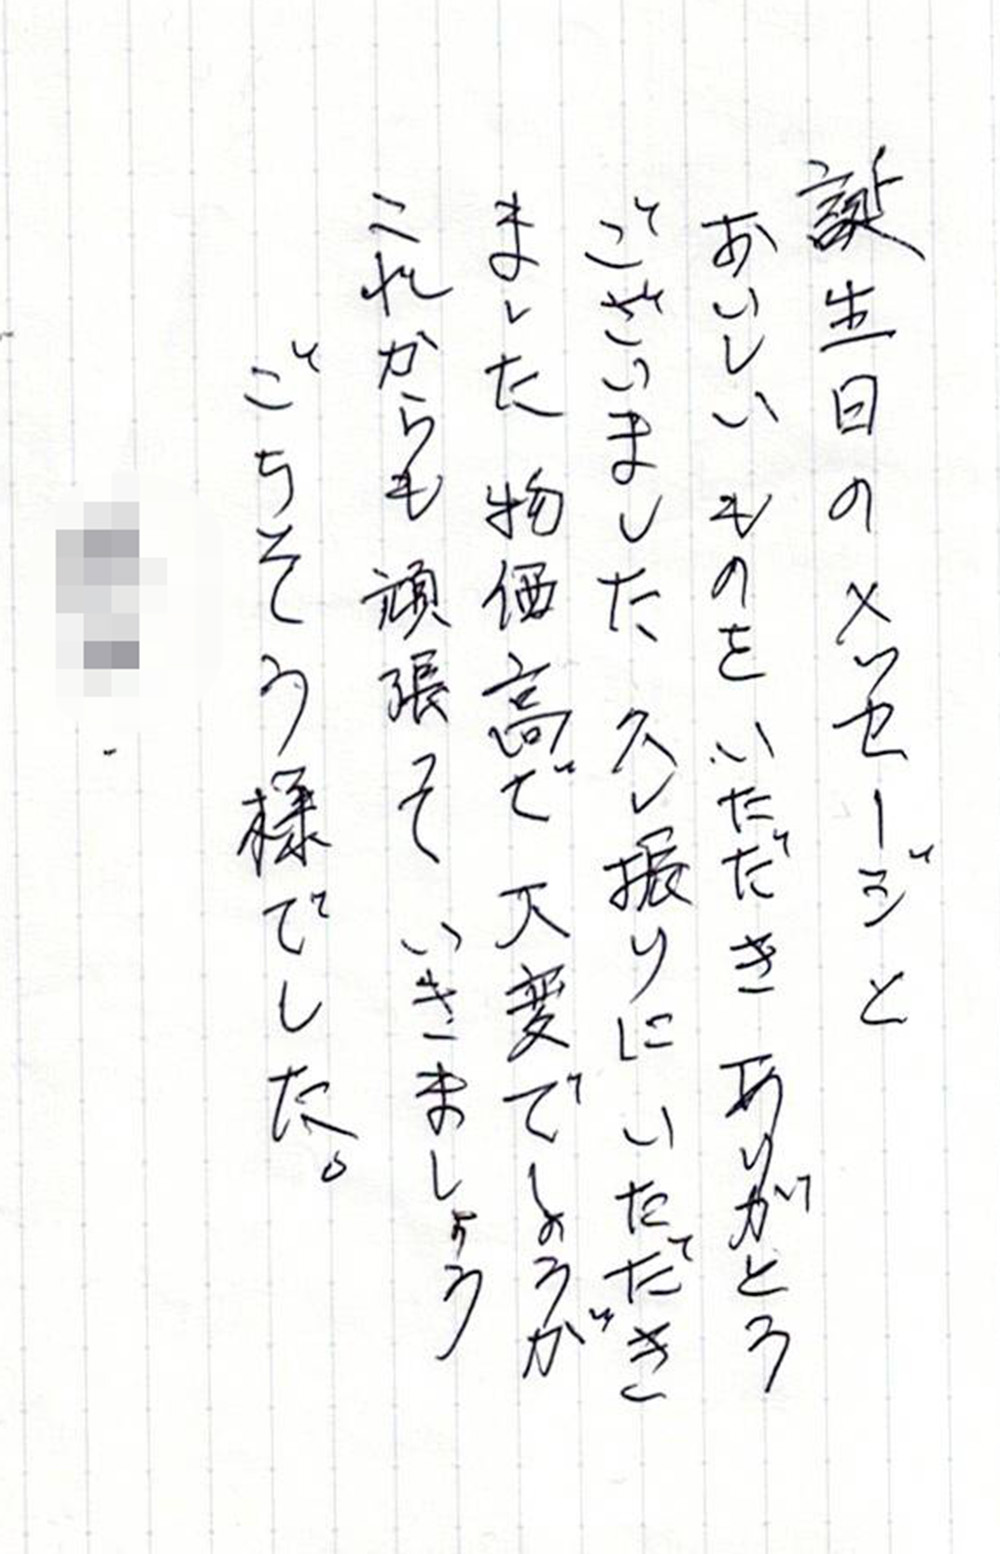 誕生日のメッセージと
おいしいものをいただき ありがとう
ございました 久し振りにいただき
ました 物価高で 大変でしょうが
これからも頑張って いきましょう
ごちそう様でした。